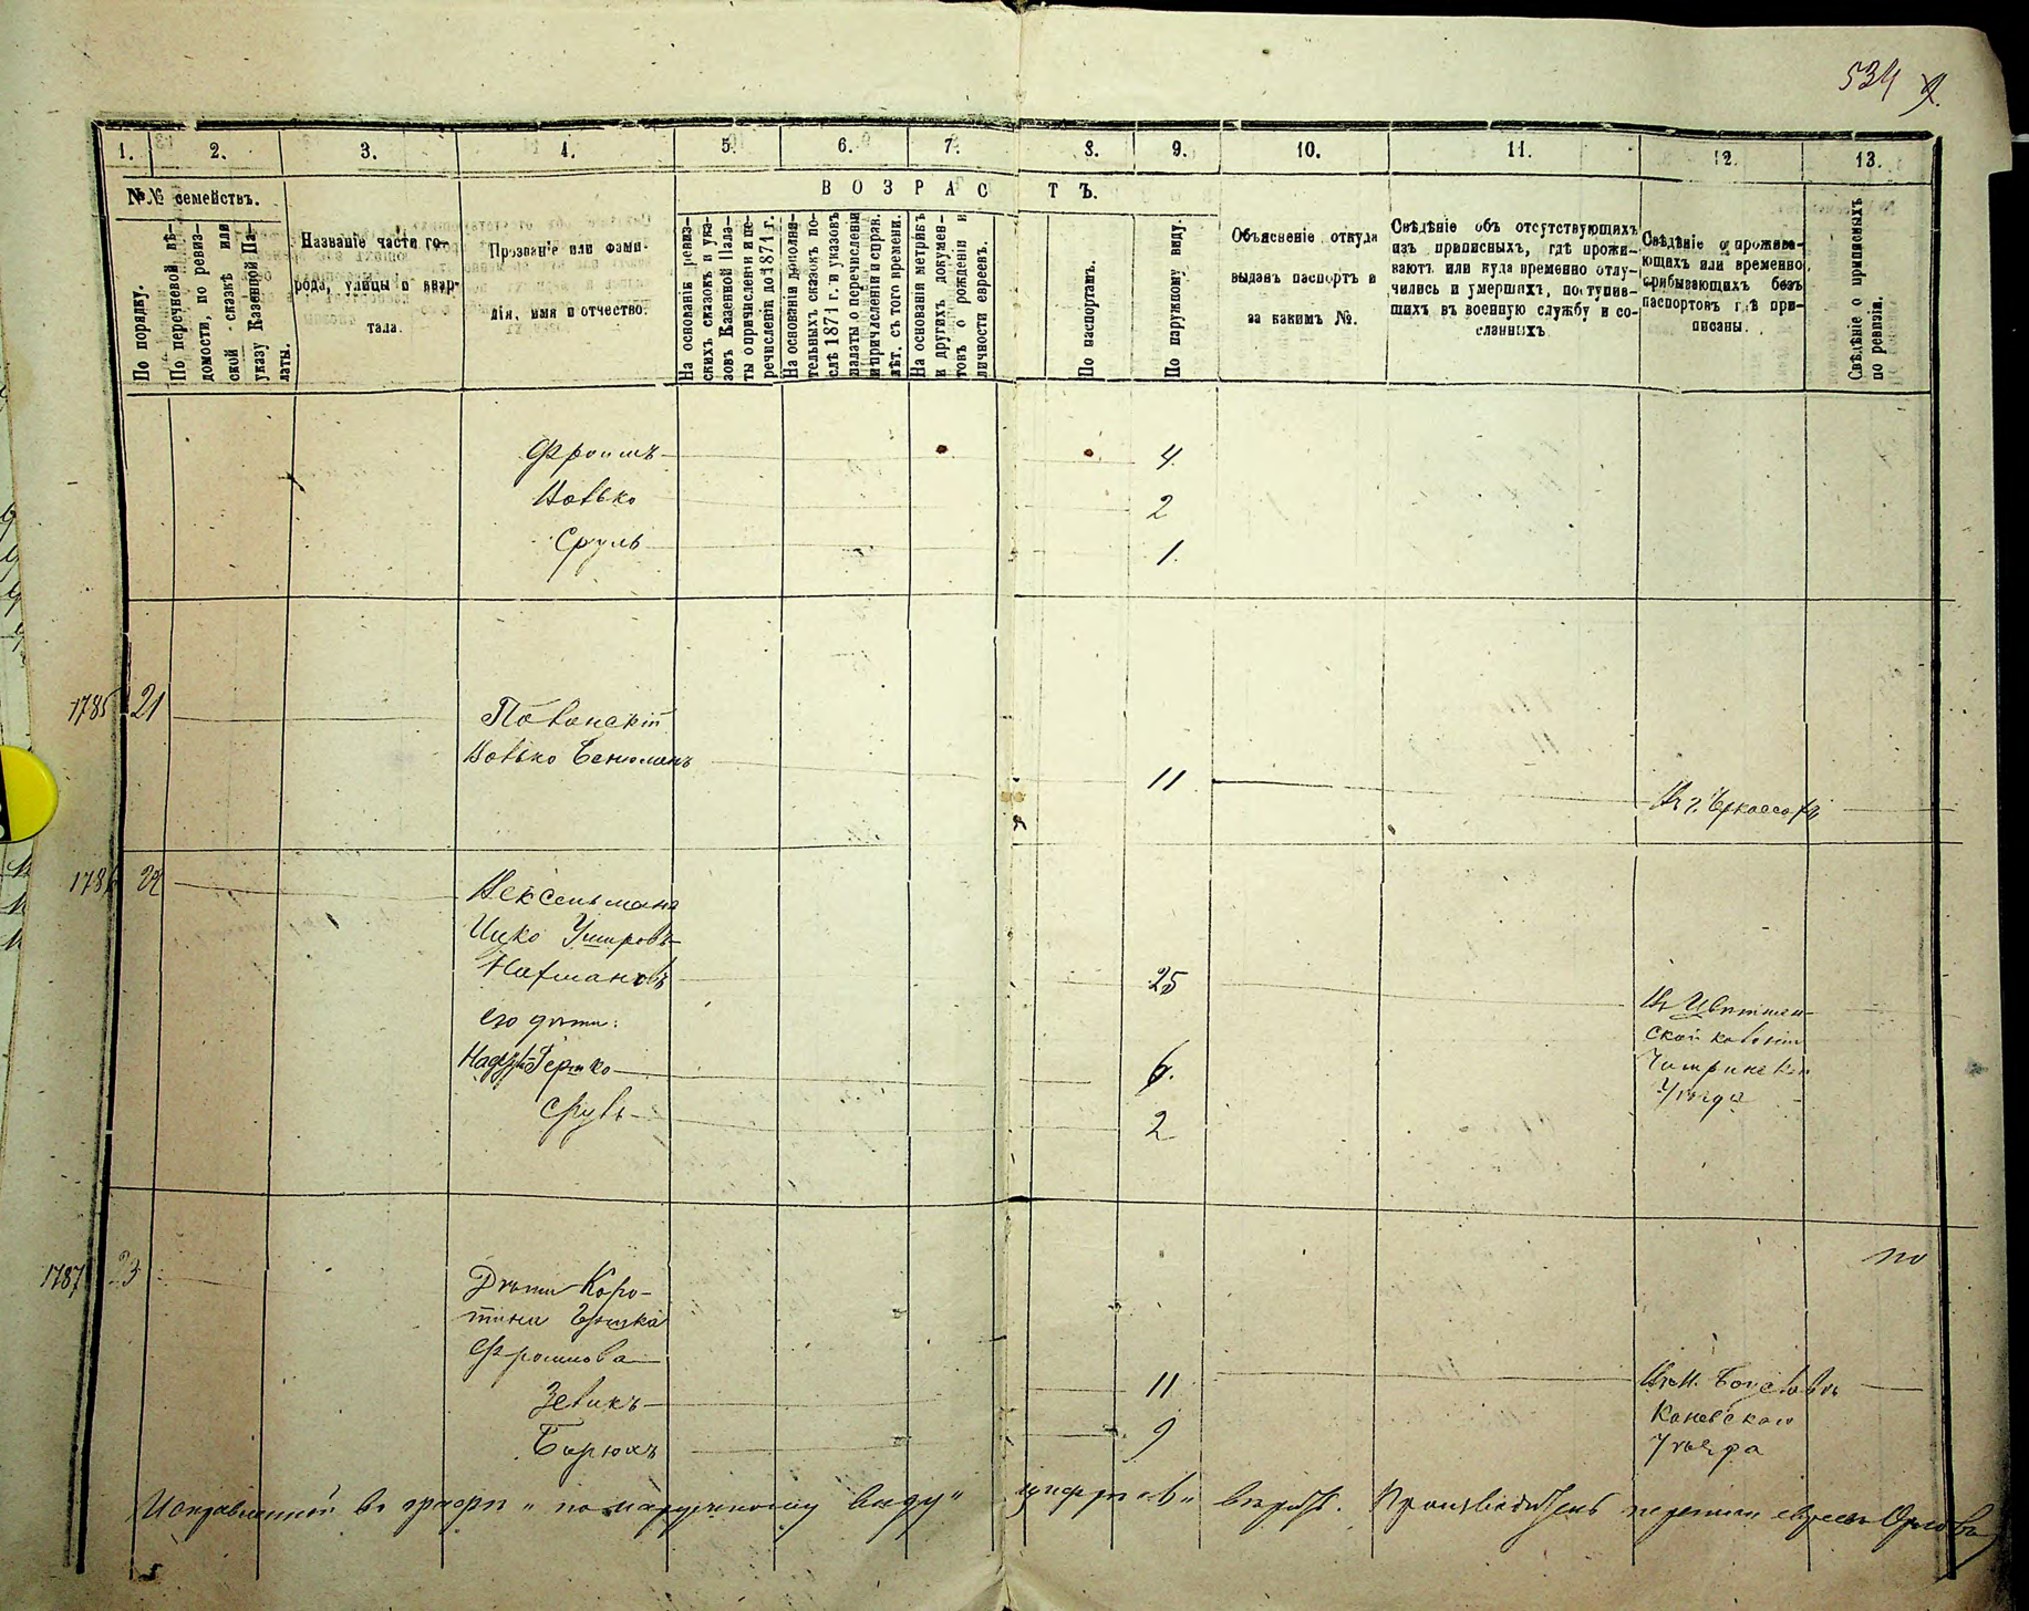 534
1. 2. 3. 4. 5. 6. 7. 8. 9. 10. 11. 12. 13.
№№ семействъ.
В О З Р А С Т Ъ.
По порядку.
По перечневой вѣ-
домости, по ревиз-
ской сказкѣ или
указу Казенной Па-
латы.
Названіе части го-
рода, улицы и квар-
тала.
Прозваніе или фами-
лія, имя и отчество.
На основаніи ревиз-
скихъ сказокъ и ука-
зовъ Казенной Пала-
ты о причисленіи и пе-
речисленіи до 1871 г.
На основаніи дополни-
тельныхъ сказокъ по-
слѣ 1871 г. и указовъ
палаты о перечисленіи
и причисленіи и справ.
лѣт. съ того времени.
На основаніи метрикъ
и другихъ докумен-
товъ о рожденіи и
личности евреевъ.
По паспортамъ.
По наружному виду.
Объясненіе откуда
выданъ паспортъ и
за какимъ №.
Свѣдѣніе объ отсутствующихъ
изъ приписныхъ, гдѣ прожи-
ваютъ или куда временно отлу-
чились и умершихъ, поступив-
шихъ въ военную службу и со-
сланныхъ
Свѣдѣніе о прожива-
ющихъ или временно
прибывающихъ безъ
паспортовъ гдѣ при-
писаны.
Свѣдѣніе о приписныхъ
по ревизіи.
Фроимъ 4
Вовько 2
Сруль 1.
1785 21
Вовько Бенюминъ 11
Въ г. Черкассахъ
1786 22 Вексельмана
Ицко Ушировъ
Нахмановъ 25
его дѣти:
Гершко 6.
Сруль 2
ской колоніи
Чигринскаго
Уѣзда
1787 23 Дѣти Коро-
Фроимова
Зевикъ 11
Барюхъ 9
Въ м. Богуславѣ
Каневскаго
Уѣзда
въ графѣ „по наружному виду" цифра „6" вѣрно. Производитель переписи евреевъ Орловъ